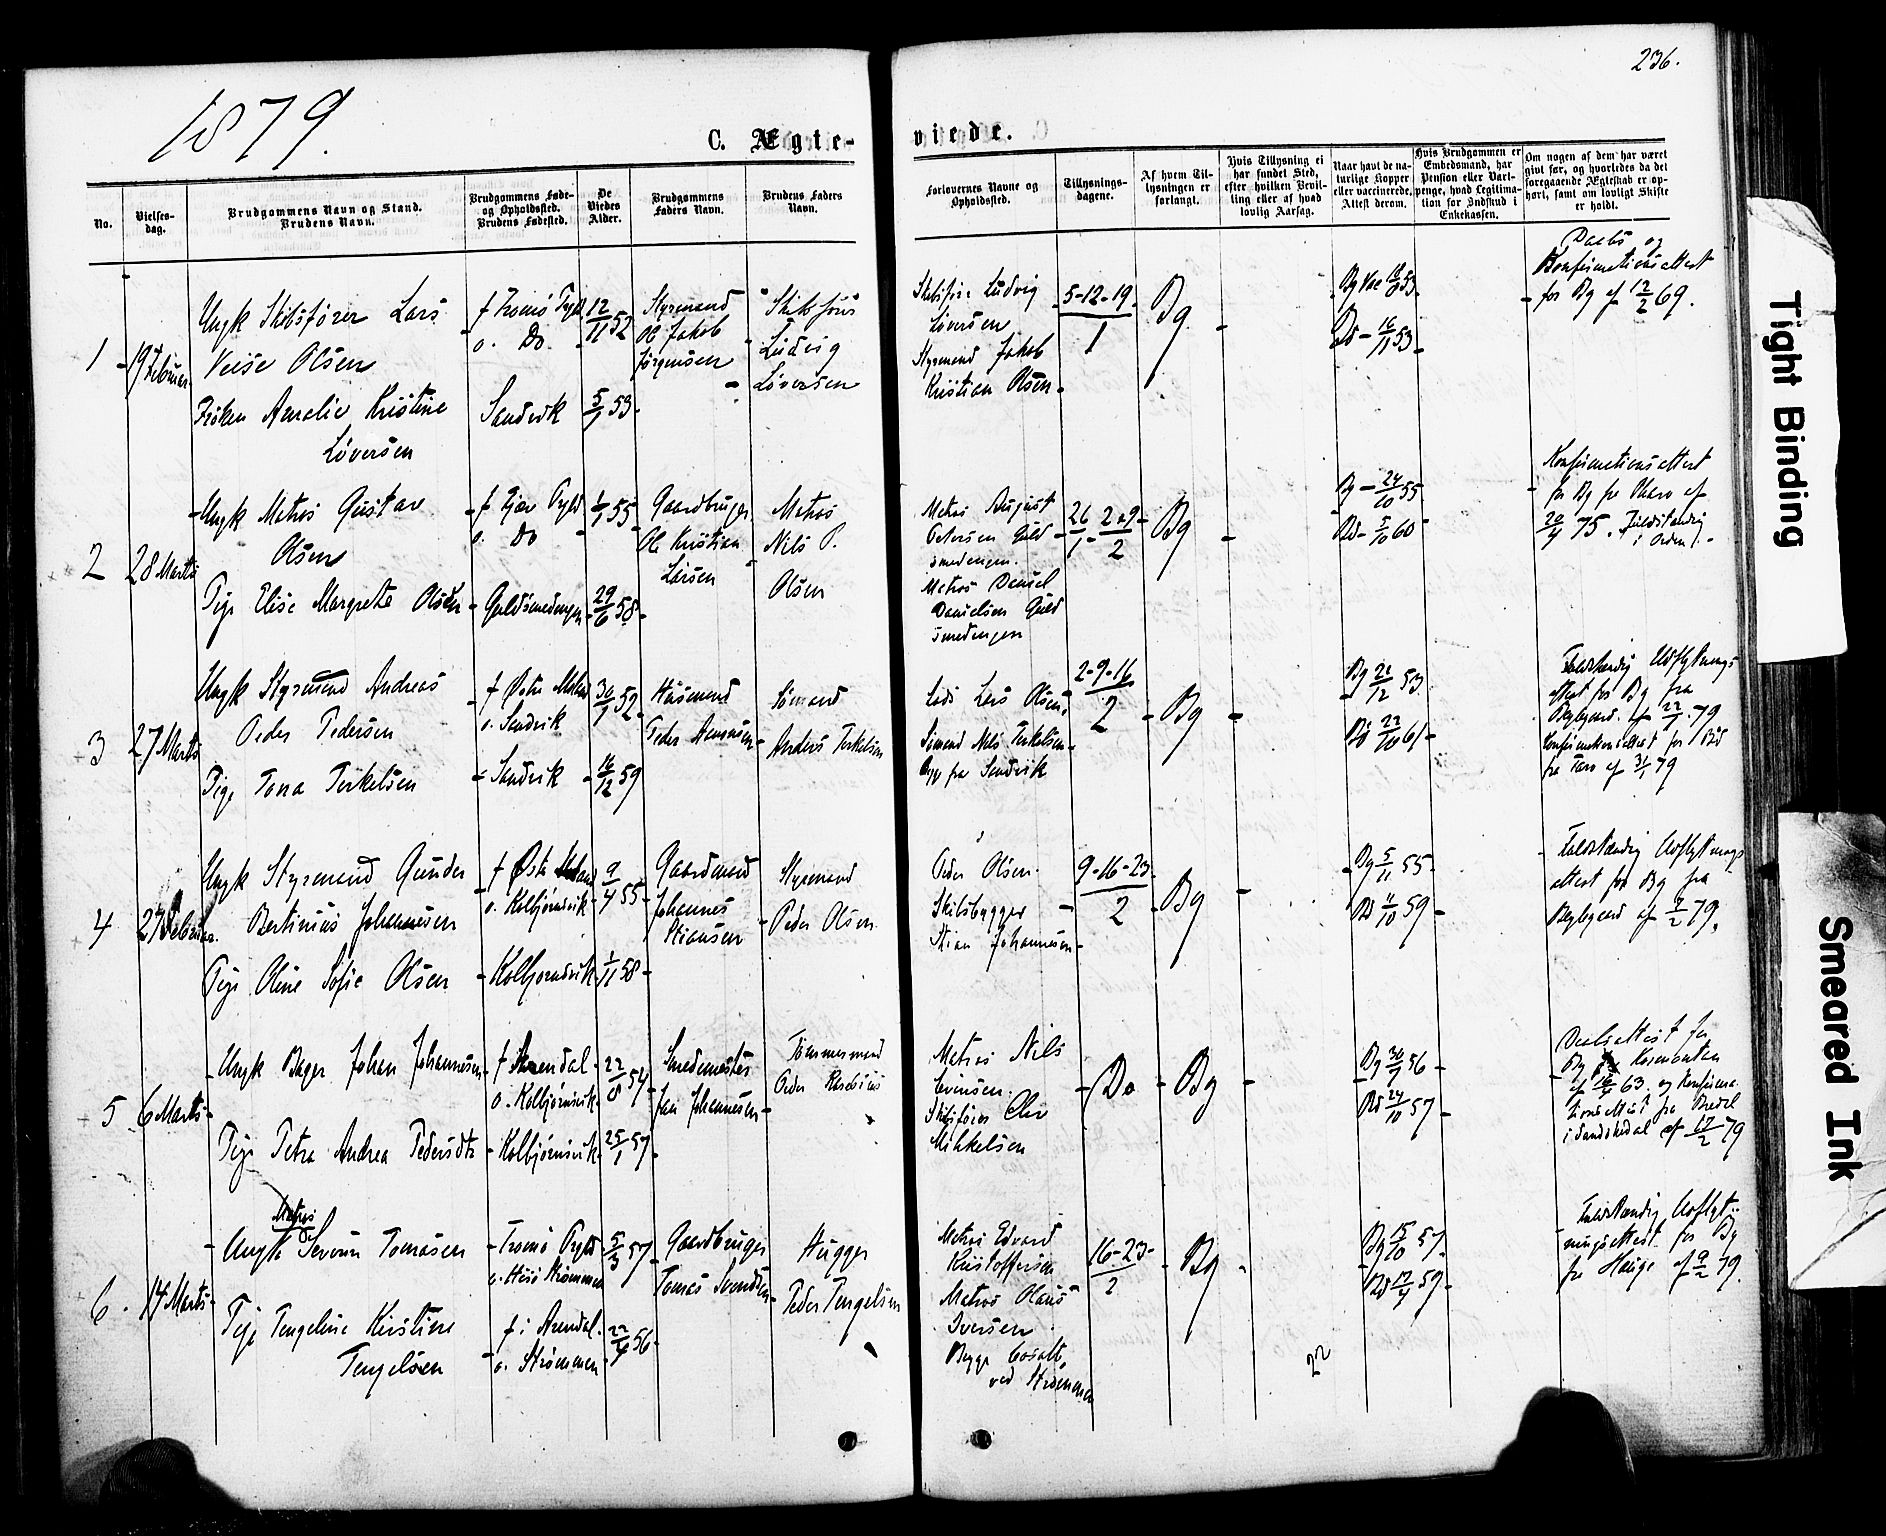 236.
1879.
C. Ægte-
viede.
No.
Vielses-
dag.
Brudgommens Navn og Stand.
Brudens Navn.
Brudgommens Føde-
og Opholdssted.
Brudens Fødested.
De
Viedes
Alder.
Brudgommens
Faders Navn.
Brudens Faders
Navn.
Forlovernes Navne og
Opholdssted.
Tillysnings-
dagene.
Af hvem Til-
lysningen er
forlangt.
Hvis Tillysning ei
har fundet Sted,
efter hvilken Bevil-
ling eller af hvad
lovlig Aarsag.
Naar havt de na-
turlige Kopper
eller vaccinerede,
Attest derom.
Hvis Brudgommen er
Embedsmand, har
Pension eller Vart-
penge, hvad Legitima-
tion for Indskud i
Enkekassen.
Om nogen af dem har været
givt før, og hvorledes da det
foregaaende Ægteskab er op-
hørt, samt om lovligt Skifte
er holdt.
1
19 Februar
Ungk Skibsfører Lars
Olsen
Frøken Amalie Kristine
Løversen
f Tromø
o. Do
Sandvik
12/11 52
5/1 53
Styrmand
Ole Jakob
Jørgensen
Skibsfører
Ludvig
Løversen
Skibsfører Ludvig
Løversen
Styrmand Jakob
Kristian Olsen
5-12-19
1
Bg
Bg Vac 53
Bd 16/11 53
Daabs og
Konfirmationsattest
for Bg af 12/2 69.
2
28 Marts
Ungk Matros Gustav
Olsen
Pige Elise Margrete Olsen
o. Do
Guldsmedengen
1/1 55
29/6 58
Gaardbruger
Ole Kristian
Larsen
Matros
Nils P.
Olsen
Matros August
Petersen Guld
smedengen.
Matros Daniel
Danielsen Guld
smedengen
26/1 2 9/2
Bg
Bg 24/10 55
Bd 60
Konfirmationsattest
for Bg fra
20/4 75. Fuldstændig
i Orden
3
27 Marts
Ungk Styrmand Andreas
Peder Pedersen
Pige Tona Terkelsen
f Østre Moland
o. Sandvik
Sandvik
30/1 52
16/12 59
Husmand
Peder
Sømand
Anders Terkelsen
Lods Lars Olsen
Sømand Nils Terkelsen
Begge fra Sandvik
2-9-16
2
Bg
Bg 21/12 53
Bd 22/10 61
Fuldstændig Udflytnings
attest for Bg fra
af 22/1 79
Konfirmationsattest for Bd
fra af 31/1 79
4
27 Februar
Ungk Styrmand Gunder
Bertinius Johannesen
Pige Oline Sofie Olsen
f Østre Moland
o. Kolbjørnsvik
Kolbjørnsvik
9/4 55
1/11 58
Gaardmand
Johannes
Stiansen
Styrmand
Peder Olsen
Peder Olsen
Skibsbygger
Stian Johannesen
9-16-23
2
Bg
Bg 5/11 55
Bd 11/10 59
Fuldstændig Udflytnings
attest for Bg fra
79.
5
6 Marts
Ungk Bager Johan Johannesen
Pige Petra Andrea Pedersdtr
f Arendal
o. Kolbjørnsvik
Kolbjørnsvik
22/8 54
25/1 57
Smedemester
Jan Johannesen
Tømmermand
Peder
Matros Nils
Eversen
Skibsfører Chr
Mikkelsen
Do
Bg
Bg 30/9 56
Bd 24/10 57
Daabsattest for
Bg
63. og Konfirma-
tionsattest fra
i Sandskedal af 79
6
14 Marts
Matros
Ungk Severin Tomasen
Pige Tengeline Kirstine
Tengelsen
Tromø
o. Hisø Strømmen
f. i Arendal
o. Strømmen
5/3 57
22/4 56
Gaardbruger
Tomas Svendsen
Hugger
Peder Tengelsen
Matros Edvard
Kristoffersen
Matros Olaus
Iversen
Begge bosatt
ved Strømmen
16-23
2
Bg
Bg 15/10 57
Bd 17/4 59
Fuldstændig Udflyt-
ningsattest for Bg
fra Hauge af 9/2 79.
22
Tight Binding
Smeared Ink